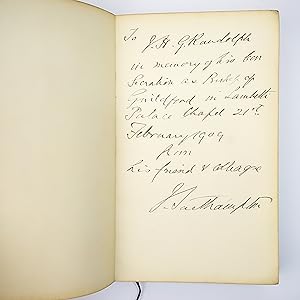 To J. H. G. Randolph
in memory of his Con
secration as Bishop of
Guildford in Lambeth
Palace Chapel 21st
February 1909
from
his friend &
J. Southampton